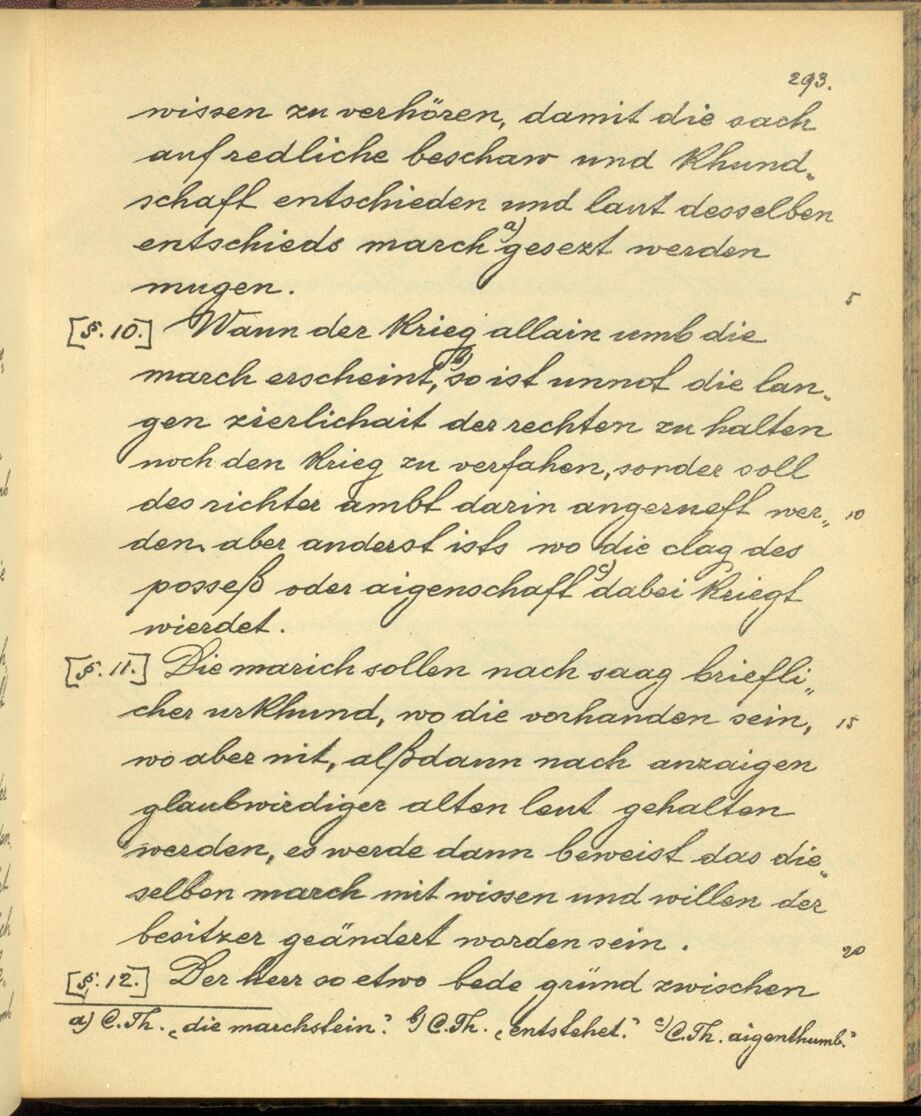 293.
wissen zu verhören, damit die sach
auf redliche beschaw und khund„
schafft entschieden und laut desselben
entschieds march a) gesezt werden
mugen.
5
[§. 10.] Wann der krieg allain umb die
march erscheint, b) so ist unnot die lan„
gen zierlichait der rechten zu halten
noch den krieg zu verfahen, sonder soll
des richter ambt darin angerueft wer„ 10
den, aber anderst ists wo die clag des
posseß oder aigenschafft c) dabei kriegt
wierdet.
[§. 11.] Die marich sollen nach saag briefli„
cher urkhund, wo die vorhanden sein, 15
wo aber nit, alßdann nach anzaigen
glaubwirdiger alten leut gehalten
werden, es werde dann beweist das die„
selben march mit wissen und willen der
besitzer geändert worden sein.
20
[§. 12.] Der herr so etwo bede gründ zwischen
a) C.Th. „die marchstein". b) C.Th. „entstehet." c) C.Th. aigenthumb."